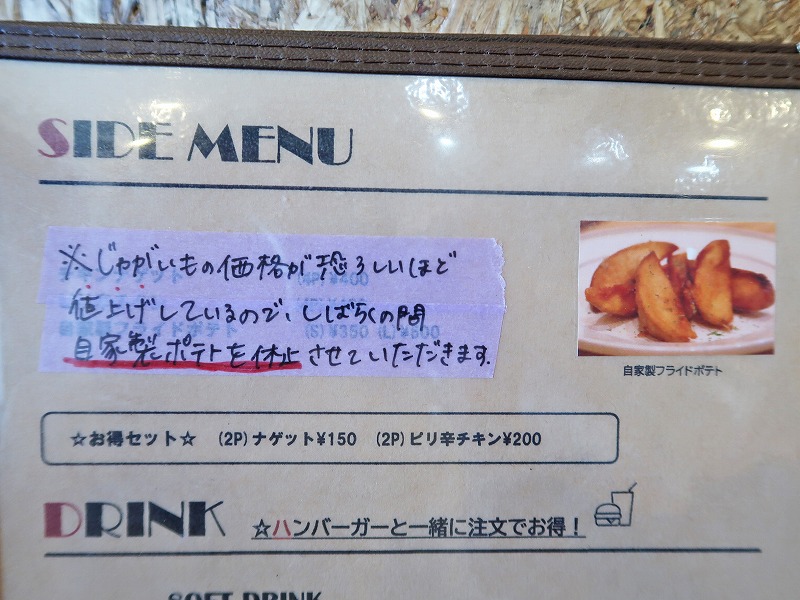 SIDE MENU
※じゃがいもの価格が恐ろしいほど
値上げしているので、しばらくの間
自家製ポテトを休止させていただきます。
(4P) ¥400
自家製フライドポテト (S)¥350 (L)¥500
自家製フライドポテト
☆お得セット☆ (2P)ナゲット¥150 (2P)ピリ辛チキン¥200
DRINK ☆ハンバーガーと一緒に注文でお得！
SOFT DRINK